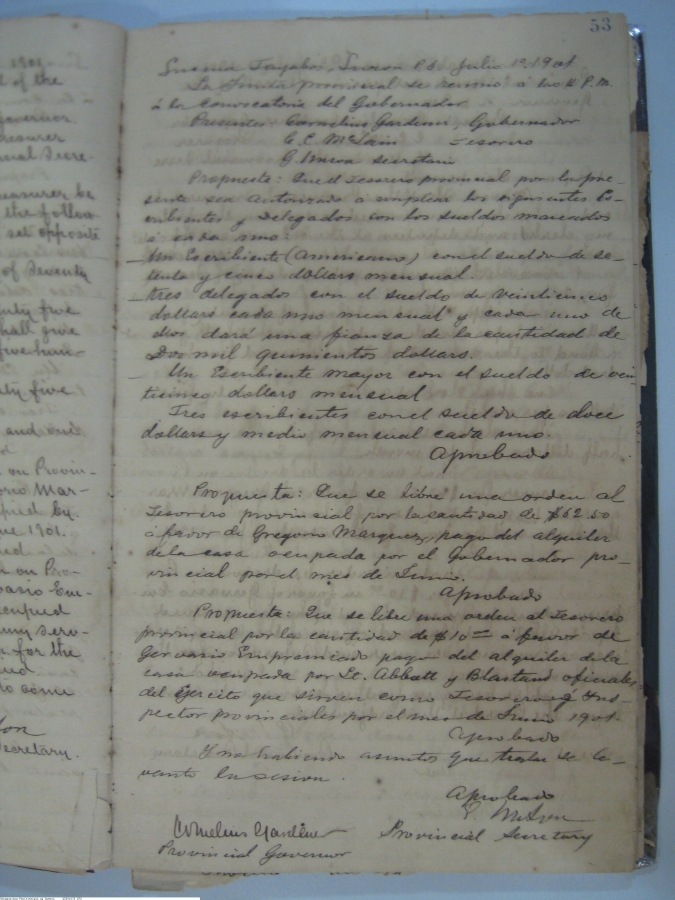 1901
t of the
overnor
easurer
ial Secre-
easurer be
the follow-
set opposite
of Seventy
enty five
hall give
five hun-
nty five
and one
on Provin-
orio Mar-
pied by
ne 1901.
n on Pro-
vasio Em-
ccupied
my serv-
n for the
to come
Secretary.
53
Lucena Tayabas, Luzon P.I. Julio 1º, 1901
La Junta provincial se reunió á las 4 P.M.
á la convocatoria del Gobernador
Presentes: Cornelius Gardener, Gobernador
Tesorero
Secretario
Propuesta: Que el Tesorero provincial por la pre-
sente sea autorizado á emplear los siguientes Es-
cribientes y Delegados con los sueldos marcados
á cada uno:
Un Escribiente (Americano) con el sueldo de se-
tenta y cinco dollars mensual.
Tres delegados con el sueldo de veinticinco
dollars cada uno mensual y cada uno de
ellos dará una fianza de la cantidad de
Dos mil quinientos dollars.
Un Escribiente mayor con el sueldo de vein
ticinco dollars mensual
Tres escribientes con el sueldo de doce
dollars y medio mensual cada uno.
Aprobado
Propuesta: Que se libre una orden al
Tesorero provincial por la cantidad de $62.50
á favor de Gregorio Marquez, pago del alquiler
de la casa ocupada por el Gobernador pro-
vincial por el mes de Junio.
Aprobado
Propuesta: Que se libre una orden al Tesorero
provincial por la cantidad de $10 á favor de
Gervasio Empremiado pago del alquiler de la
casa ocupada por Lt. Abbott y Blastand oficiales
del Ejercito que sirven como Tesorero é Ins-
pector provinciales por el mes de Junio 1901.
Aprobado
Y no habiendo asuntos que tratar se le-
vantó la sesion.
Aprobado
Cornelius Gardener
Provincial Secretary
Provincial Governor